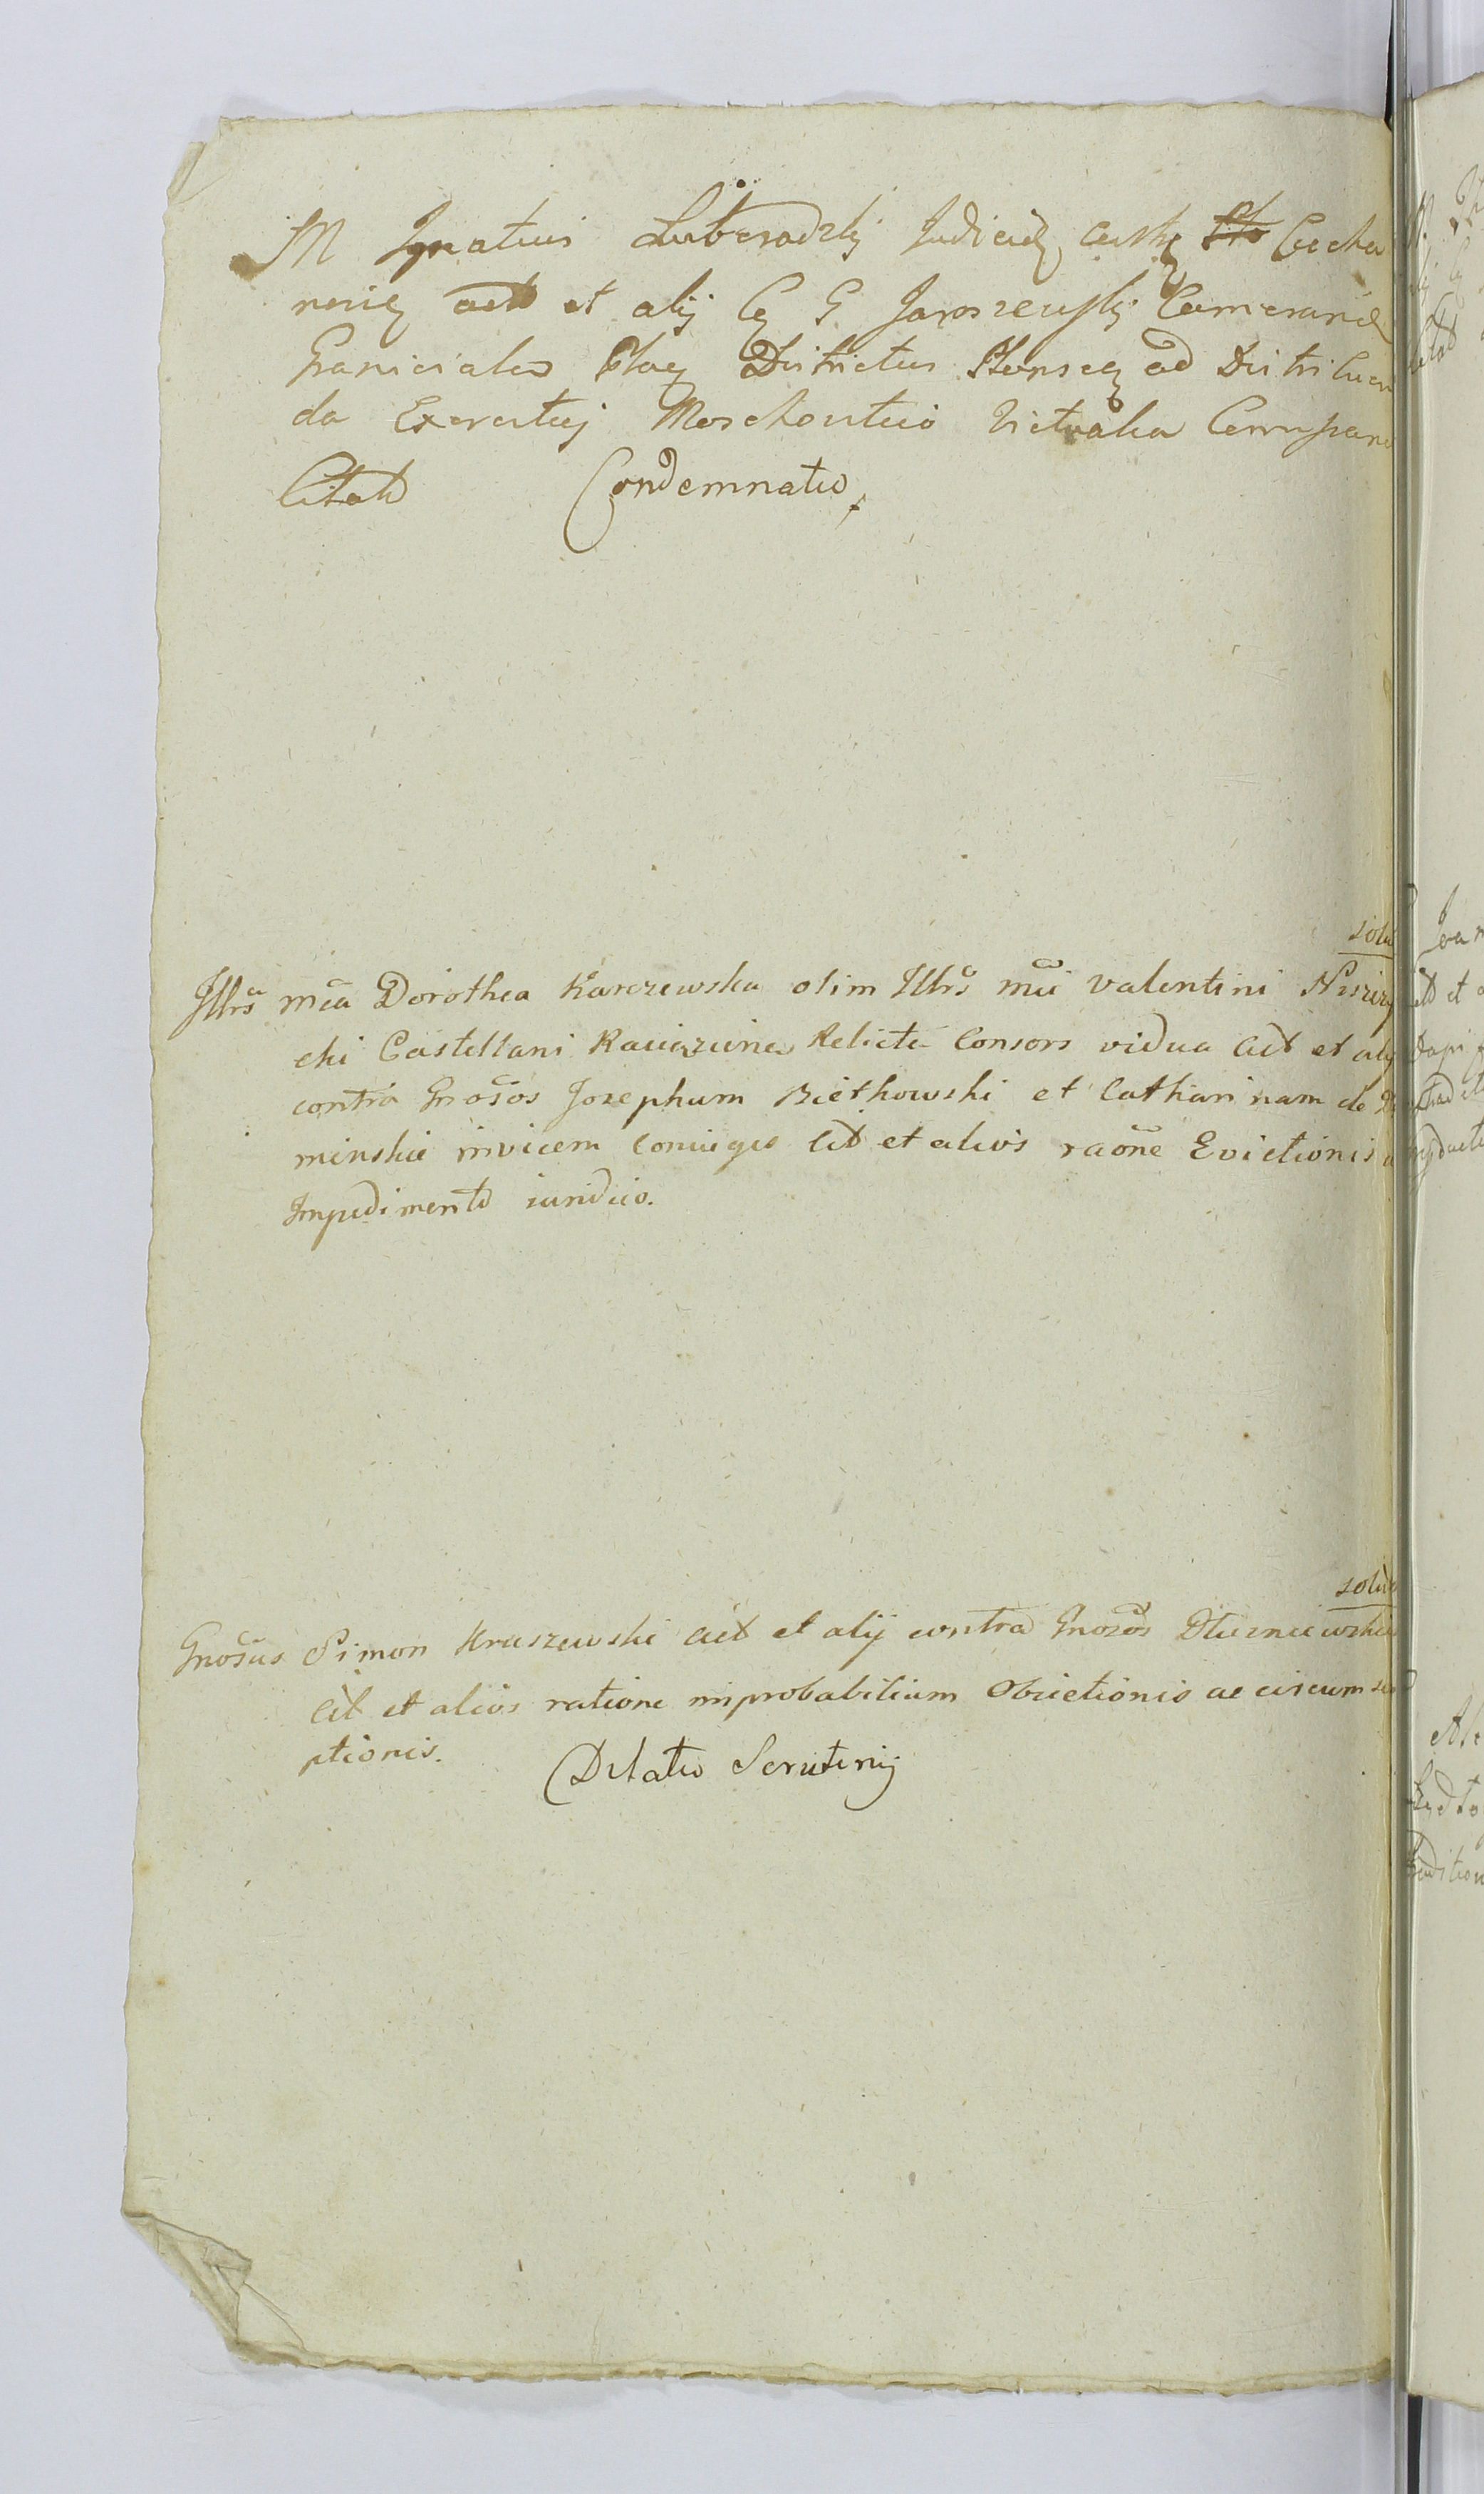 M Ignatius Luberadzkj Judicid Castr Plo Ciecha
neng act et alij C G Jaroszewskj Camerarid
Granicialem Plocg Districtus Plonseg ad Distribuen
da Exercituj Moschovitico Victualia Comparen
Citat Condemnatio
solu
Illrs mca Dorothea Karczewska olim Illrs mci Valentini Niszczy
cki Castellani Raciązinen Relicta Consors vidua act et alij
contra Gnosos Josephum Bietkowski et Catharinam de
minskie invicem Coniuges cit et alios raone Evictionis
Impedimento iuridico.
solu
Gnosus Simon Kraszewski act et alij contra Gnosos Dłuzniewskie
cit et alios ratione improbabilium Obiectionis ac circumscri
ptionis. Dilatio Scrutinij